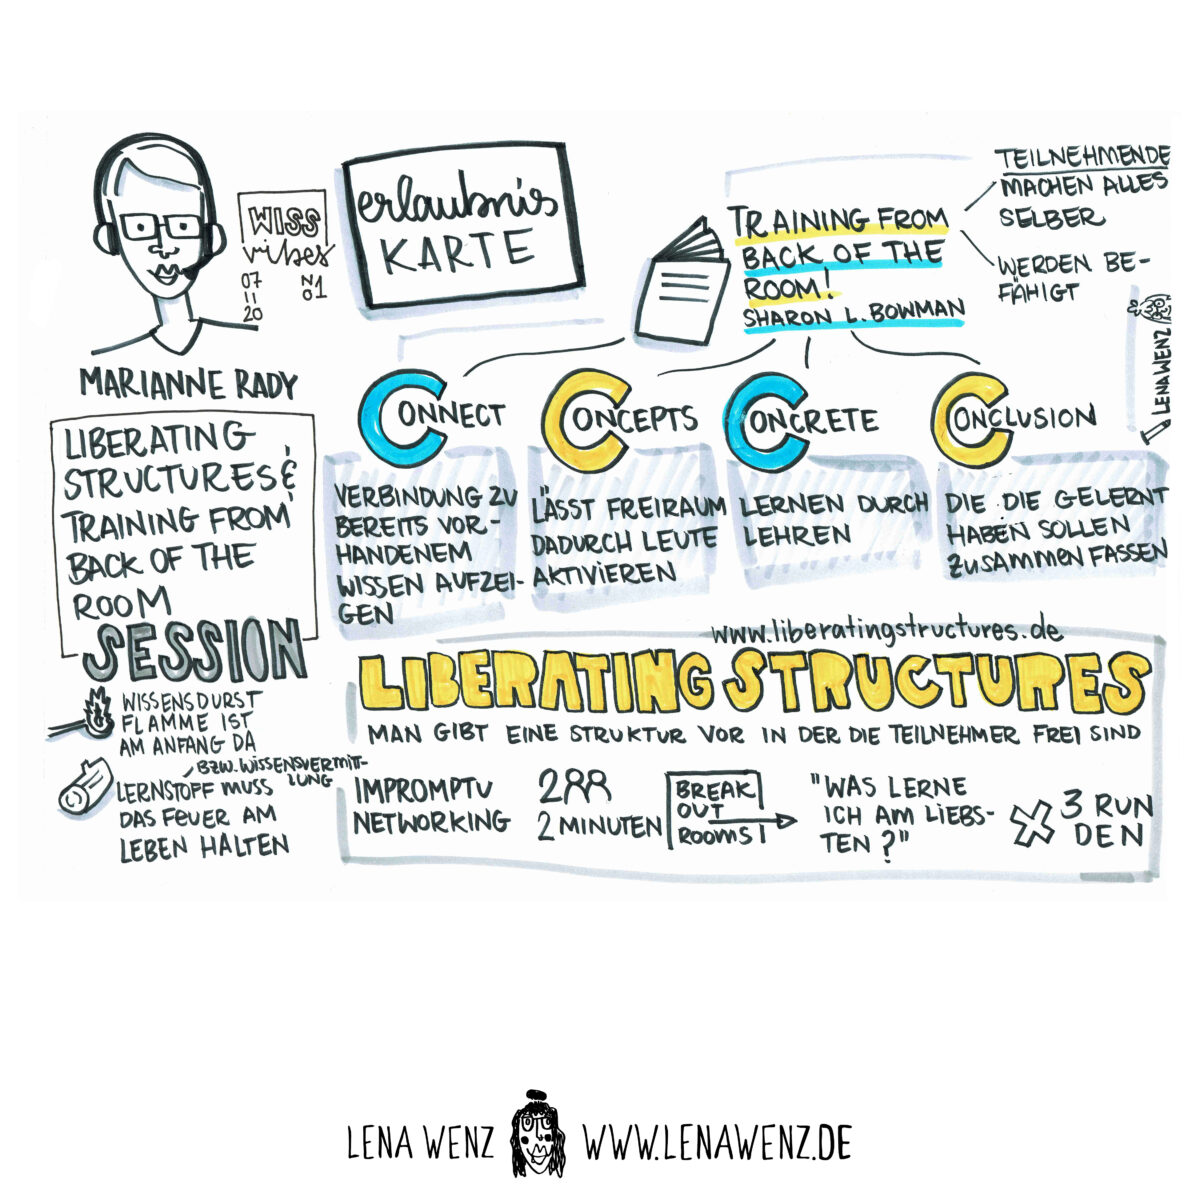 WISS
vibes
07
11
20
NO
1
MARIANNE RADY
LIBERATING
STRUCTURES &
TRAINING FROM
BACK OF THE
ROOM
SESSION
WISSENSDURST
FLAMME IST
AM ANFANG DA
BZW. WISSENSVERMITT-
LUNG
LERNSTOFF MUSS
DAS FEUER AM
LEBEN HALTEN
erlaubnis
KARTE
TRAINING FROM
BACK OF THE
ROOM!
SHARON L. BOWMAN
TEILNEHMENDE
MACHEN ALLES
SELBER
WERDEN BE-
FÄHIGT
LENAWENZ
CONNECT
VERBINDUNG ZU
BEREITS VOR-
HANDENEM
WISSEN AUFZEI-
GEN
CONCEPTS
LÄSST FREIRAUM
DADURCH LEUTE
AKTIVIEREN
CONCRETE
LERNEN DURCH
LEHREN
CONCLUSION
DIE DIE GELERNT
HABEN SOLLEN
ZUSAMMENFASSEN
www.liberatingstructures.de
LIBERATING STRUCTURES
MAN GIBT EINE STRUKTUR VOR IN DER DIE TEILNEHMER FREI SIND
IMPROMPTU
NETWORKING
2
2 MINUTEN
BREAK
OUT
ROOMS!
"WAS LERNE
ICH AM LIEBS-
TEN?"
X 3 RUN
DEN
LENA WENZ WWW.LENAWENZ.DE